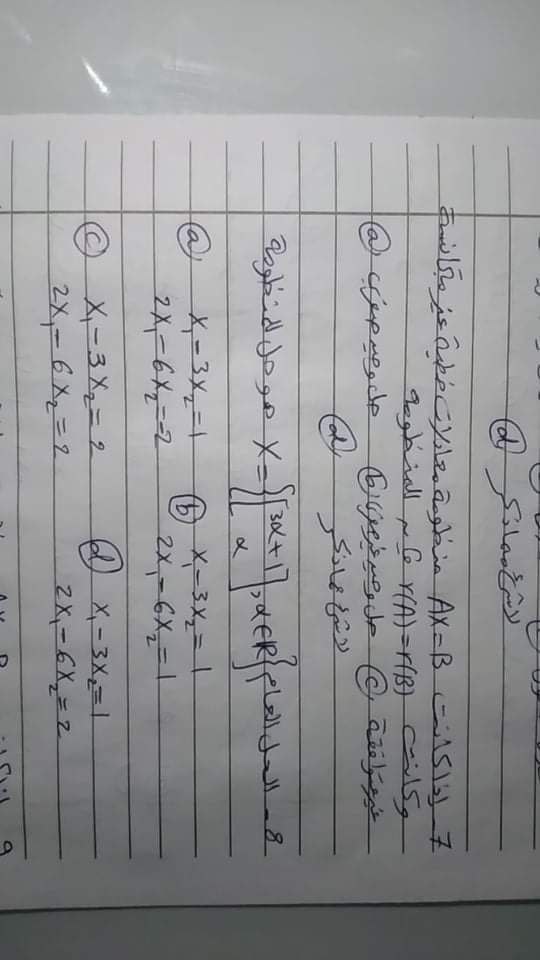 لاشيء مماذكر ⓓ
7 - إذا كانت AX=B منظومة معادلات خطية غير متجانسة
وكانت r(A)=r(B) للمنظومة
ⓐ حل وحيد صفري ⓑ حل وحيد غير صفري ⓒ غير متوافقة
ⓓ لاشيء مماذكر
8 - الحل العام X={[3α+1 α], α∈R} هو حل للمنظومة
ⓐ x₁-3x₂=1 ⓑ x₁-3x₂=1
2x₁-6x₂=-2 2x₁-6x₂=1
ⓒ x₁-3x₂=2 ⓓ x₁-3x₂=1
2x₁-6x₂=2 2x₁-6x₂=2